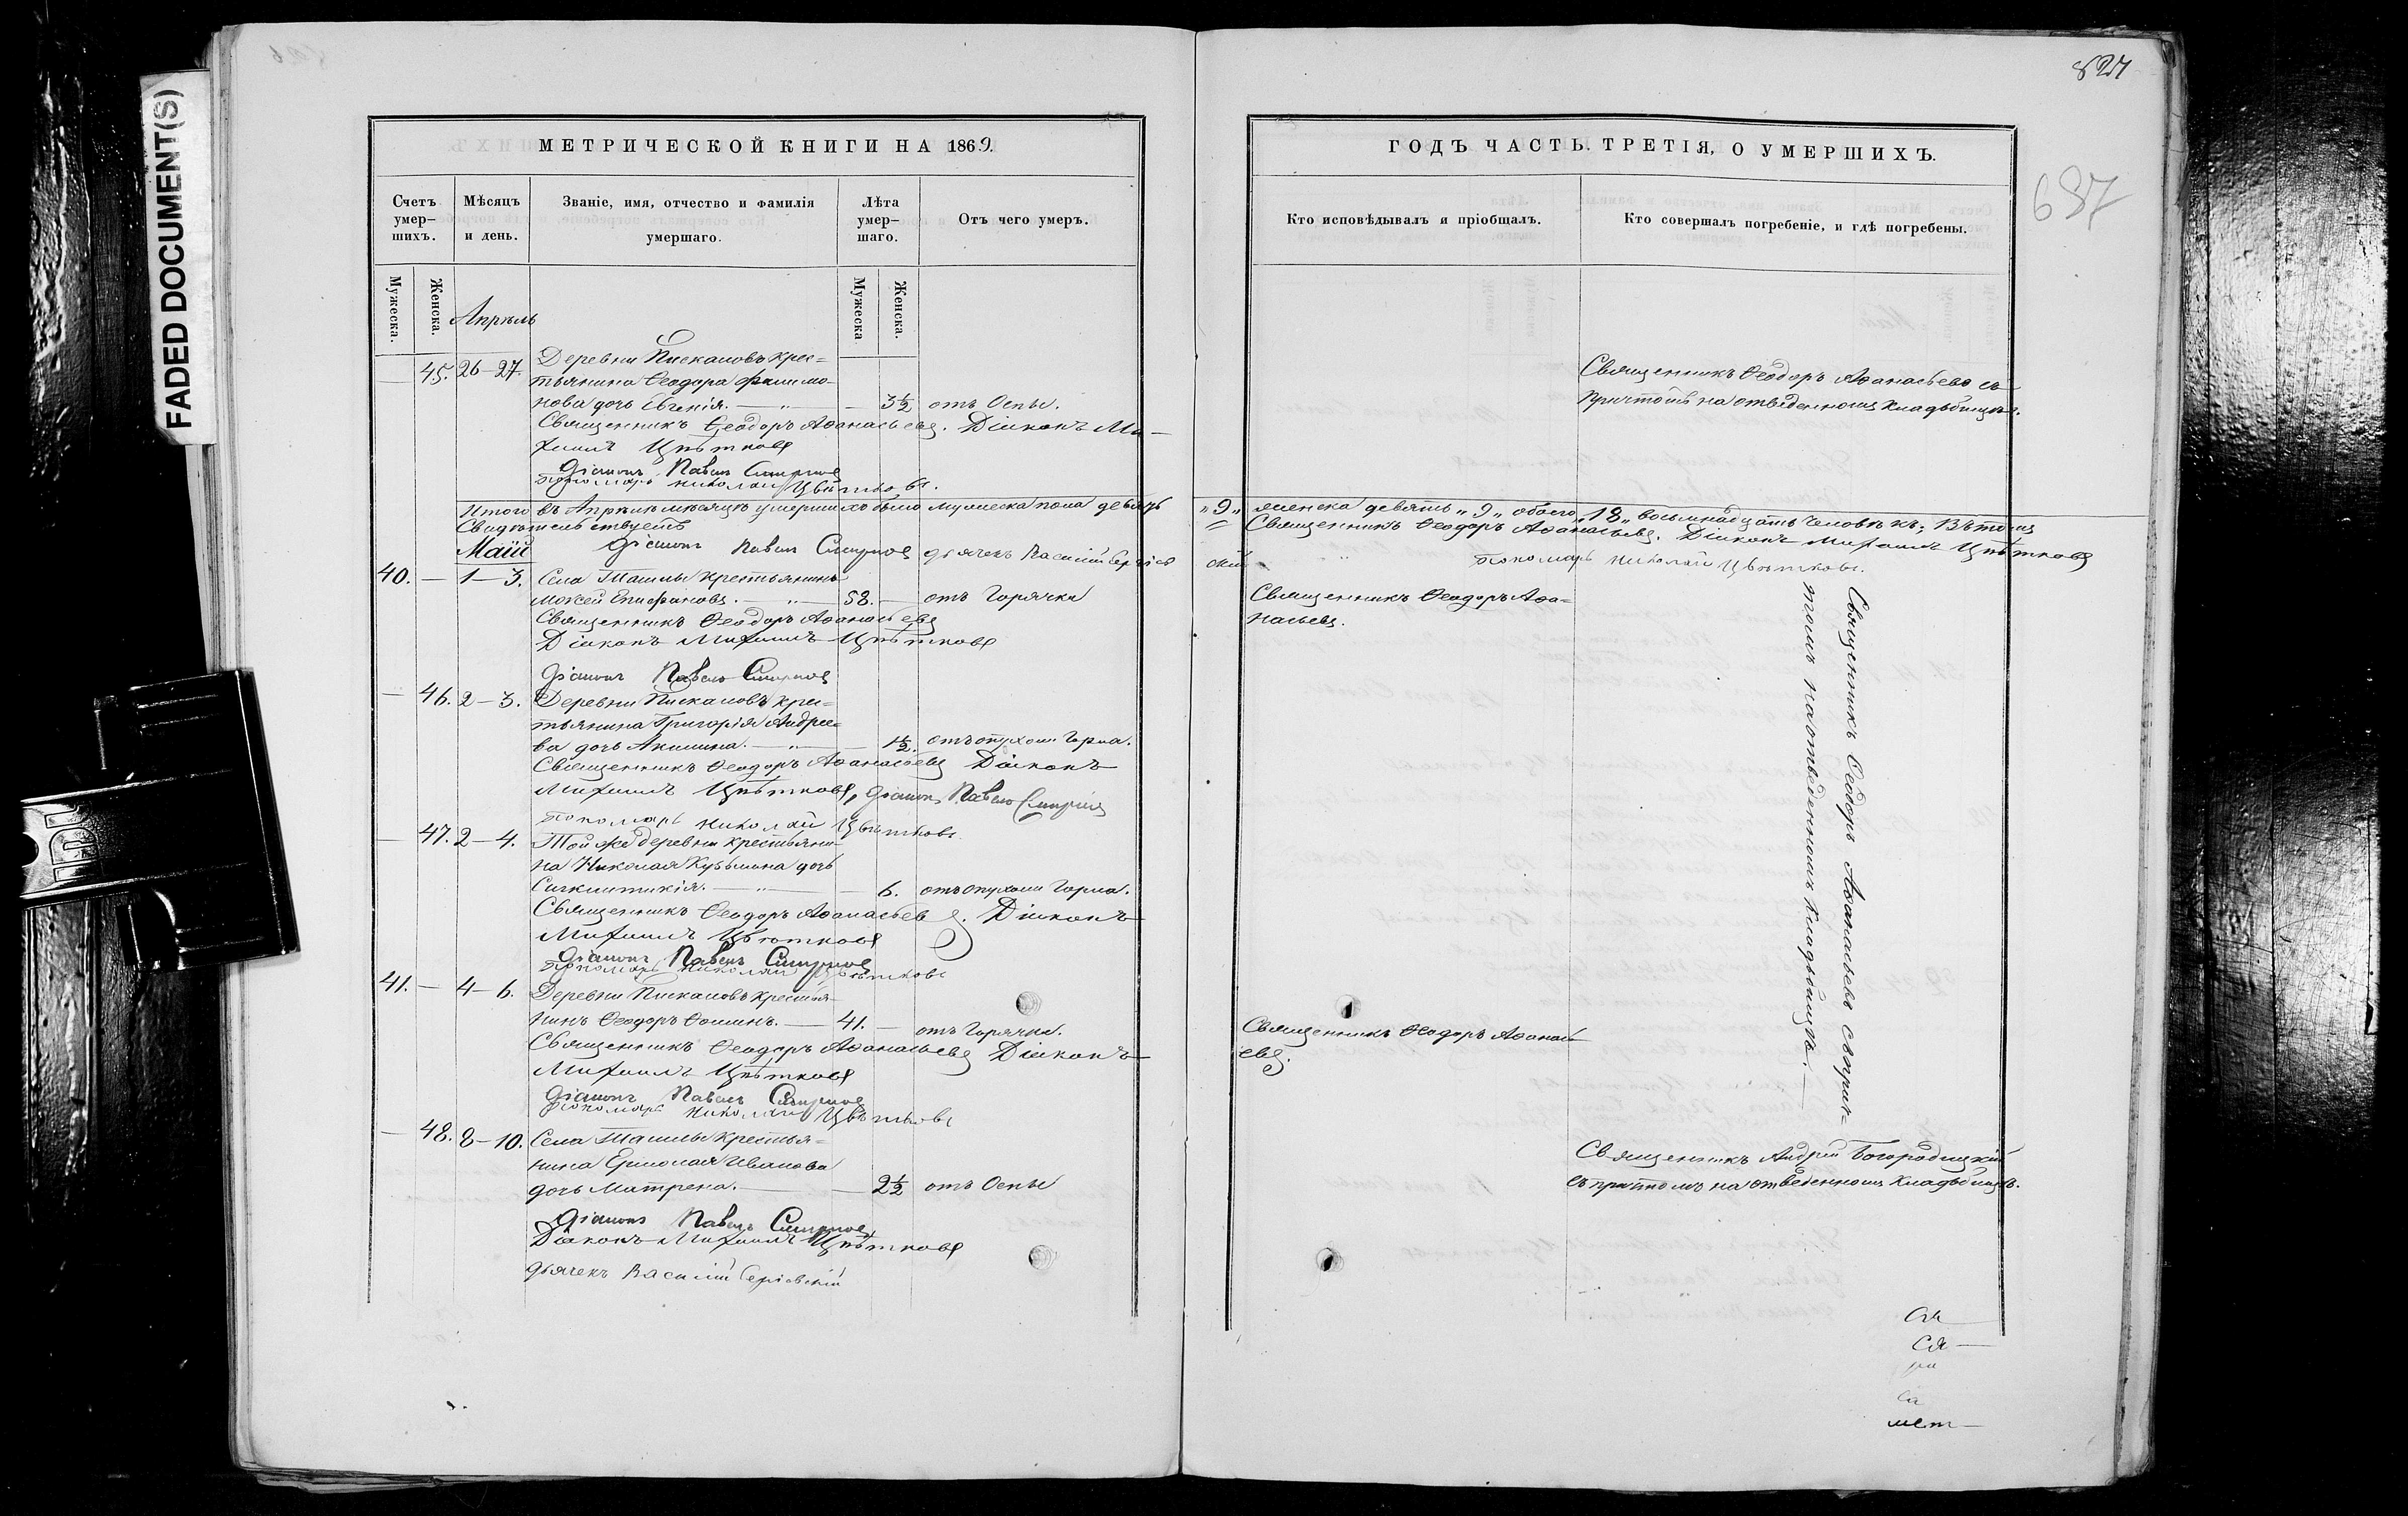 FADED DOCUMENT(S)
827
637
МЕТРИЧЕСКОЙ КНИГИ НА 1869.
Счетъ умер–шихъ.
Мѣсяцъ и день.
Званіе, имя, отчество и фамилія умершаго.
Лѣта умер–шаго.
Отъ чего умеръ.
Мужеска.
Женска.
Мужеска
Женска.
Апрѣль
— 45. 26–27. Деревни Пискаловъ крес=
тьянина Ѳеодора Филимо-
нова дочь Евгенія. — „ — — 3½ отъ Оспы.
Священникъ Ѳеодоръ Аѳанасьевъ. Діаконъ Ми–
хаилъ Цвѣтковъ
Діаконъ Павелъ Смирновъ
Пономарь Николай Цвѣтковъ.
Итого въ Апрѣлѣ мѣсяцѣ умершихъ было мужеска пола девять
Свидѣтельствуетъ
Маій
Діаконъ Павелъ Смирновъ дьячекъ Василій Сергіев
40. — 1–3. Села Ташлы крестьянинъ
Мокей Епифановъ. — „ — 58. — отъ Горячки
Священникъ Ѳеодоръ Аѳанасьевъ
Діаконъ Михаилъ Цвѣтковъ
Діаконъ Павелъ Смирновъ
— 46. 2–3. Деревни Пискаловъ крес=
тьянина Григорія Андрее=
ва дочь Акилина. — „ — 1½. отъ опухоли Горла.
Священникъ Ѳеодоръ Аѳанасьевъ Діаконъ
Михаилъ Цвѣтковъ, Діаконъ Павелъ Смирновъ
Пономарь Николай Цвѣтковъ
— 47. 2–4. Той же деревни крестьяни-
на Николая Кузьмина дочь
Сигклитикія. — „ — — 6. отъ опухоли Горла.
Священникъ Ѳеодоръ Аѳанасьевъ. Діаконъ
Михаилъ Цвѣтковъ
Діаконъ Павелъ Смирновъ
Пономарь Николай Цвѣтковъ
41. — 4–6. Деревни Пискаловъ крестья-
нинъ Ѳеодоръ Ѳоминъ. — 41. — отъ Горячки.
Священникъ Ѳеодоръ Аѳанасьевъ Діаконъ
Михаилъ Цвѣтковъ
Діаконъ Павелъ Смирновъ
Пономарь Николай Цвѣтковъ
— 48. 8–10. Села Ташлы крестья=
нина Ермолая Иванова
дочь Матрена. — — 2½ отъ Оспы
Діаконъ Павелъ Смирновъ
Діаконъ Михаилъ Цвѣтковъ
дьячекъ Василій Сергіевскій
ГОДЪ ЧАСТЬ. ТРЕТІЯ, О УМЕРШИХЪ.
Кто исповѣдывалъ и пріобщалъ.
Кто совершалъ погребеніе, и гдѣ погребены.
Священникъ Ѳеодоръ Аѳанасьевъ съ
причтомъ на отведенномъ кладбищѣ.
„9„ женска девять „9„ обоего „18„ восьмнадцать человѣкъ; Въ томъ
Священникъ Ѳеодоръ Аѳанасьевъ. Діаконъ Михаилъ Цвѣтковъ
скій Пономарь Николай Цвѣтковъ.
Священникъ Ѳеодоръ Аѳа=
насьевъ.
Священникъ Ѳеодоръ Аѳанасьевъ съ прич=
томъ на отведенномъ кладбищѣ. —
Священникъ Ѳеодоръ Аѳанась
евъ.
Священникъ Андрей Богородицкій
съ причтомъ на отведенномъ кладбищѣ.
ся —
мет —